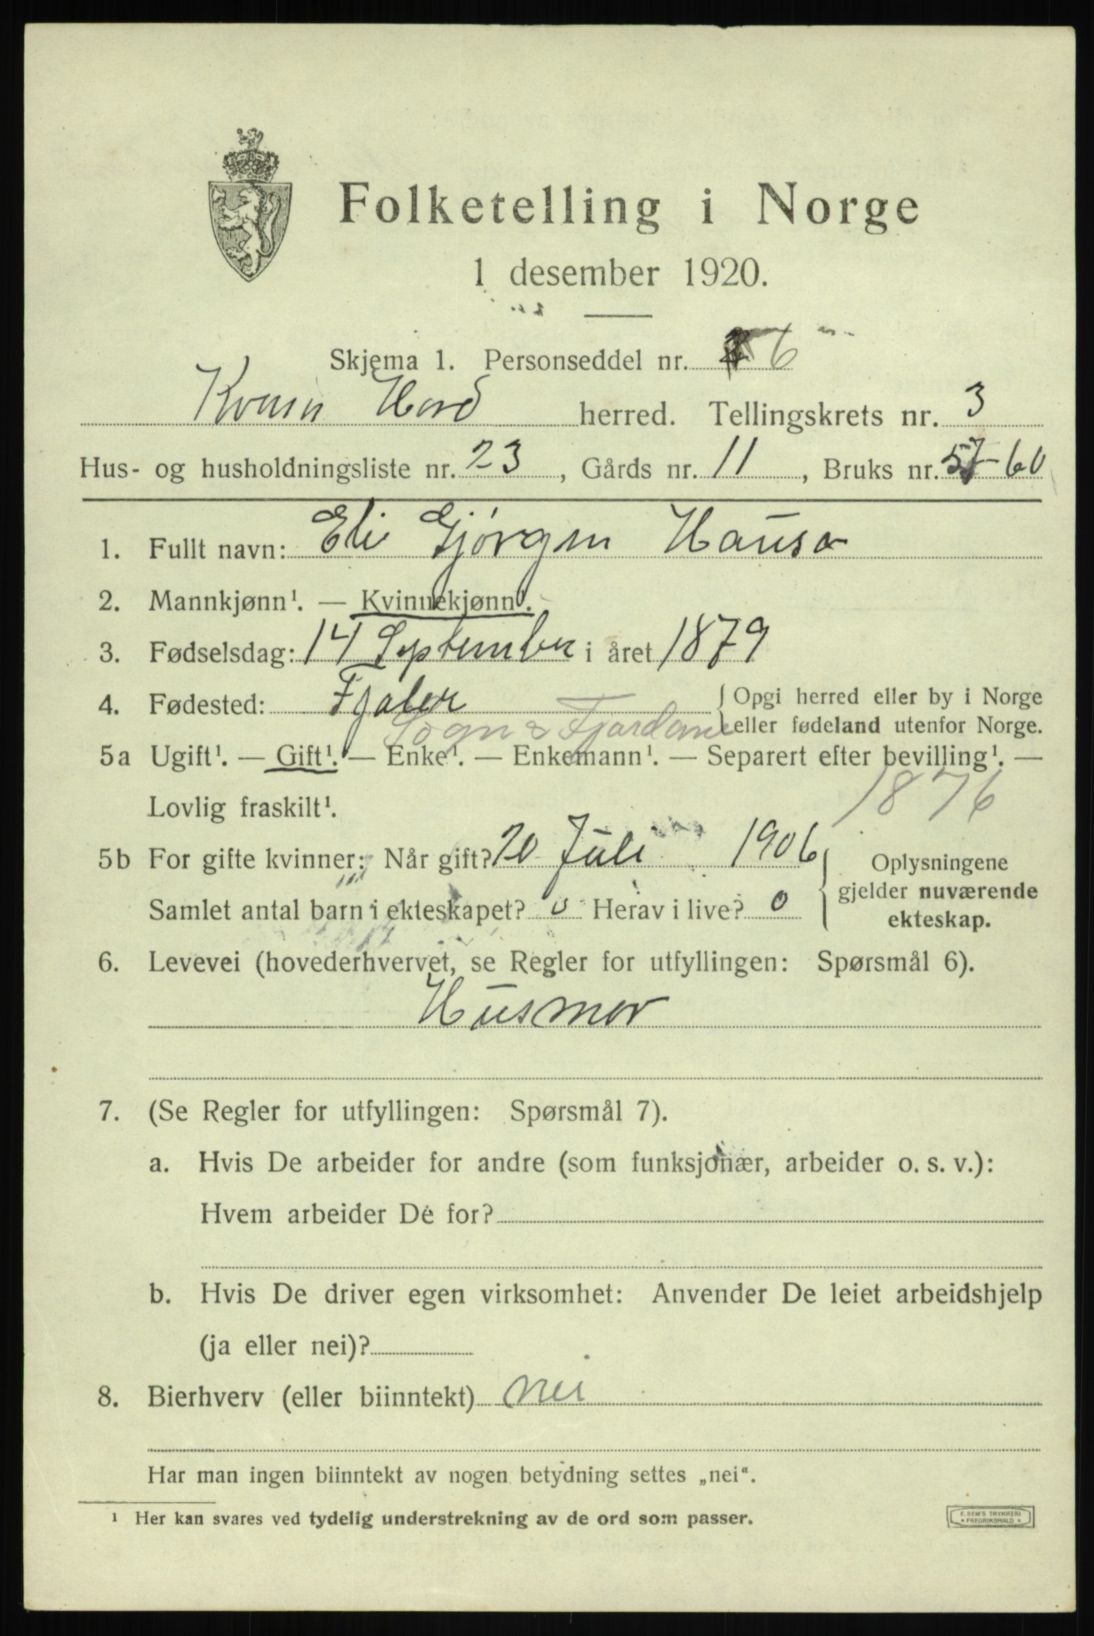 Folketelling i Norge
1 desember 1920.
Skjema 1. Personseddel nr. 6
Kvam Hord herred. Tellingskrets nr. 3
Hus- og husholdningsliste nr. 23, Gårds nr. 11, Bruks nr. 57-60
1. Fullt navn: Eli Gjørgen Hauso
2. Mannkjønn¹. — Kvinnekjønn¹.
3. Fødselsdag: 14 September i året 1879
4. Fødested: Fjaler { Opgi herred eller by i Norge
Sogn & Fjordane eller fødeland utenfor Norge.
5a Ugift¹. — Gift¹. — Enke¹. — Enkemann¹. — Separert efter bevilling¹. —
Lovlig fraskilt¹. 1876
5b For gifte kvinner: Når gift? 20 Juli 1906 { Oplysningene
gjelder nuværende
Samlet antal barn i ekteskapet? 0 Herav i live? 0 ekteskap.
6. Levevei (hovederhvervet, se Regler for utfyllingen: Spørsmål 6).
Husmor
7. (Se Regler for utfyllingen: Spørsmål 7).
a. Hvis De arbeider for andre (som funksjonær, arbeider o. s. v.):
Hvem arbeider De for?
b. Hvis De driver egen virksomhet: Anvender De leiet arbeidshjelp
(ja eller nei)?
8. Bierhverv (eller biinntekt) nei
Har man ingen biinntekt av nogen betydning settes „nei“.
¹ Her kan svares ved tydelig understrekning av de ord som passer.
E. SEM'S TRYKKERI
FREDRIKSHALD